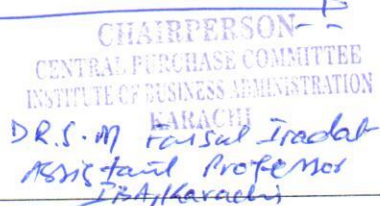 CHAIRPERSON
CENTRAL PURCHASE COMMITTEE
INSTITUTE OF BUSINESS ADMINISTRATION
KARACHI
DR.S.M Faisal Iradat
Assistant Professor
IBA, Karachi